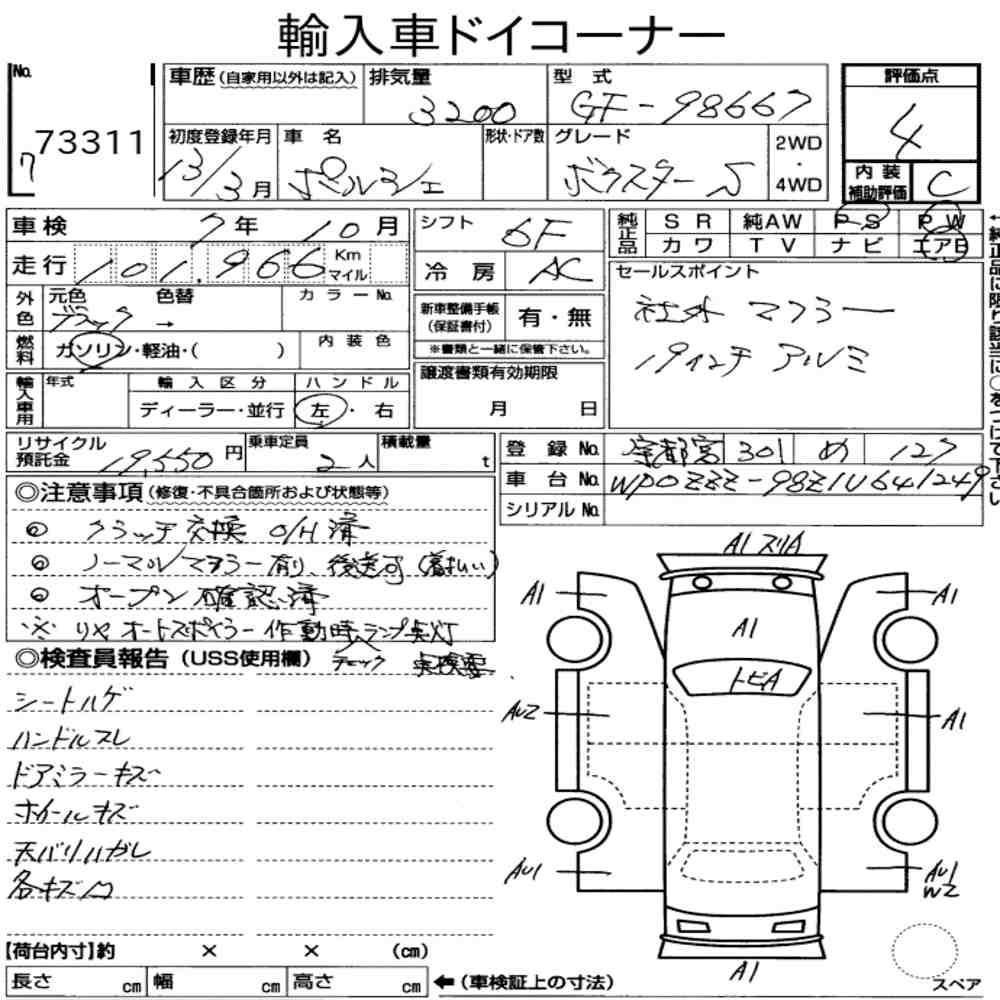 輸入車ドイコーナー
No. 73311
7
車歴(自家用以外は記入) 排気量 3200 型式 GF-98667 評価点 4
初度登録年月 13/3月 車名 ポルシェ 形状・ドア数 グレード ボクスターS 2WD・4WD 内装補助評価 C
車検 7年 10月 シフト 6F 純正品 SR 純AW PS PW
カワ TV ナビ エアB
走行 101,966 Km マイル 冷房 AC セールスポイント
外色 元色 ブラック 色替 → カラーNo. 新車整備手帳(保証書付) 有・無 社外 マフラー
燃料 ガソリン・軽油・( ) 内装色 ※書類と一緒に保管下さい。 19インチ アルミ
輸入車用 年式 輸入区分 ハンドル 譲渡書類有効期限
ディーラー・並行 左・右 月 日
←純正品に限り該当に○をつけて下さい
リサイクル預託金 19,550円 乗車定員 2人 積載量 t 登録No. 宇都宮 301 め 127
車台No. WP0ZZZ-98Z1U641249
シリアルNo.
◎注意事項(修復・不具合箇所および状態等)
◎ クラッチ交換 O/H済
◎ ノーマルマフラー有り、後送可(着払い)
◎ オープン確認済
※ リヤオートスポイラー作動時ランプ点灯
◎検査員報告(USS使用欄) チェック
シートハゲ
ハンドルスレ
ドアミラーキズ
ホイールキズ
天バリハガレ
各キズ凹
A1 スリA
A1 A1
A1
トビA
AU2 A1
AU1 AU1
W2
A1
スペア
【荷台内寸】約 × × (cm)
長さ cm 幅 cm 高さ cm ←(車検証上の寸法)